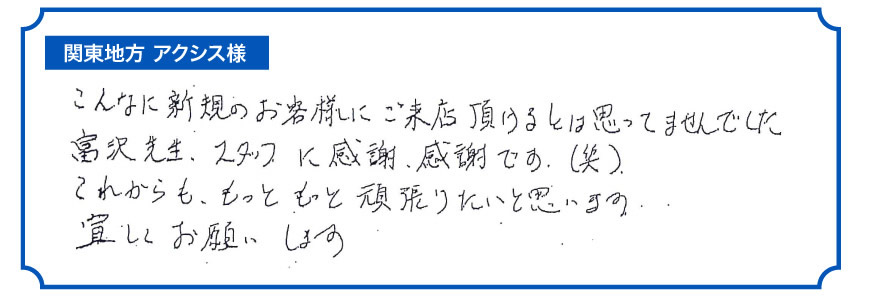 関東地方 アクシス様
こんなに新規のお客様にご来店頂けるとは思ってませんでした
富沢先生、スタッフに感謝、感謝です。(笑)
これからも、もっともっと頑張りたいと思います。
宜しくお願いします